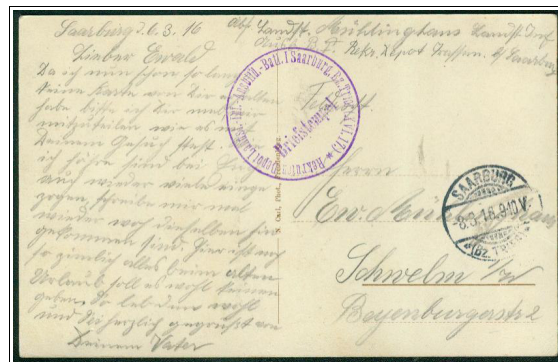 Saarburg d. 6.3.16
Lieber Ewald
Da ich nun schon so lang
keine Karte von Dir erhalten
habe bitte ich Dir
mitzuteilen wie es mit
Deinem Gesuch steht.
ich höre sind bei Euch
auch wieder viele einge
zogen, schreibe mir mal
wieder wo dieselben hin
gekommen sind. Hier ist noch
so ziemlich alles beim alten
Urlaub soll es wohl keinen
geben. So leb denn wohl
und sei herzlich gegrüßt von
Deinem Vater
Abs. Landst. Mühlinghaus Landst. Inf.
Rekr. Depot Saarburg
Feldpost
Briefstempel
Herrn
Ew. Mühlinghaus
Schwelm i/W
Beyenburgerstr. 2
SAARBURG
8.3.16.9-10V.
(BZ. TRIER)